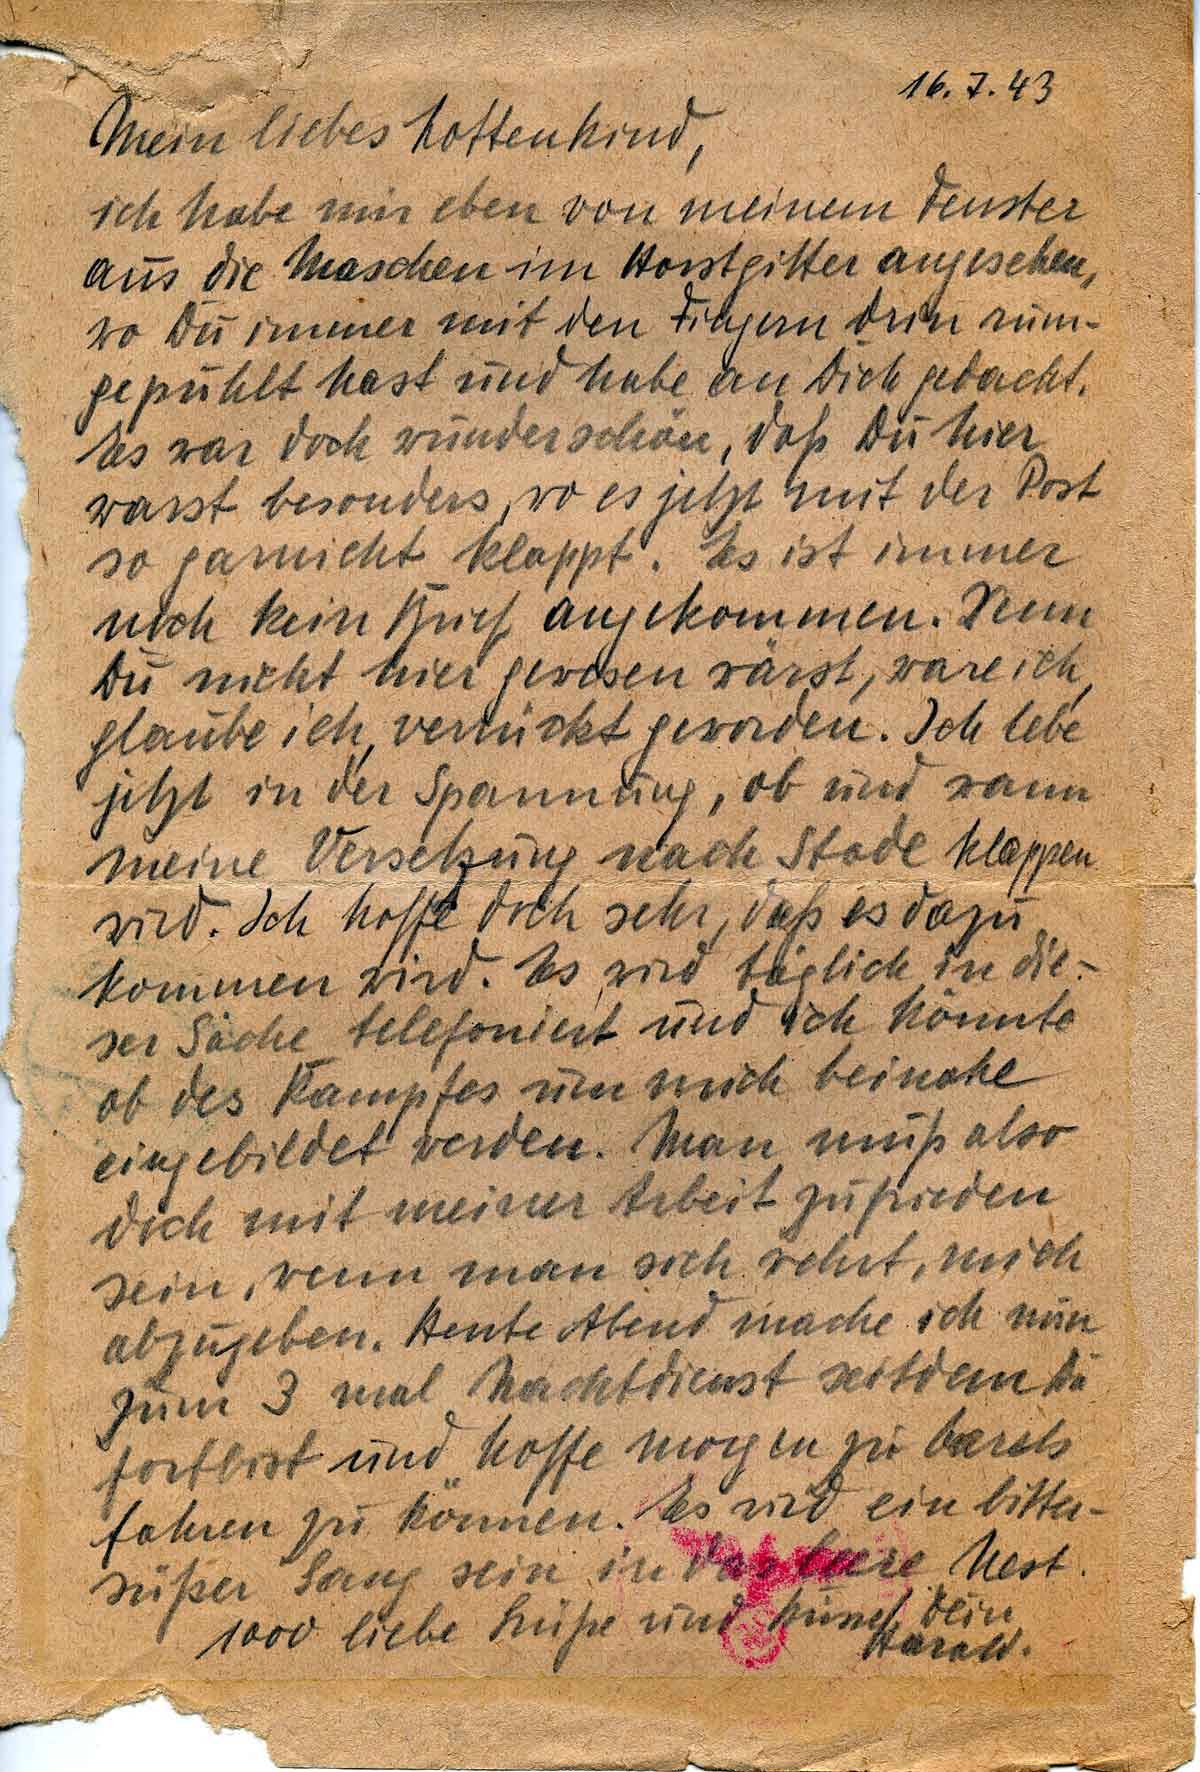 16.7.43
Mein liebes Lottenkind,
ich habe mir eben von meinem Fenster
aus die Maschen im Horstgitter angesehen,
wo Du immer mit den Fingern drin rum-
gepuhlt hast und habe an Dich gedacht.
Es war doch wunderschön, daß Du hier
warst besonders, wo es jetzt mit der Post
so garnicht klappt. Es ist immer
noch kein Brief angekommen. Wenn
Du nicht hier gewesen wärst, wäre ich,
glaube ich, verrückt geworden. Ich lebe
jetzt in der Spannung, ob und wann
meine Versetzung nach Stade klappen
wird. Ich hoffe doch sehr, daß es dazu
kommen wird. Es wird täglich in die-
ser Sache telefoniert und ich könnte
ob des Kampfes um mich beinahe
eingebildet werden. Man muß also
doch mit meiner Arbeit zufrieden
sein, wenn man sich wehrt, mich
abzugeben. Heute Abend mache ich nun
zum 3 mal Nachtdienst seitdem Du
fortbist und hoffe morgen zu
fahren zu können. Es wird ein bitter-
süßer Gang sein in das leere Nest.
1000 liebe Grüße und Küsse Dein
Harald.